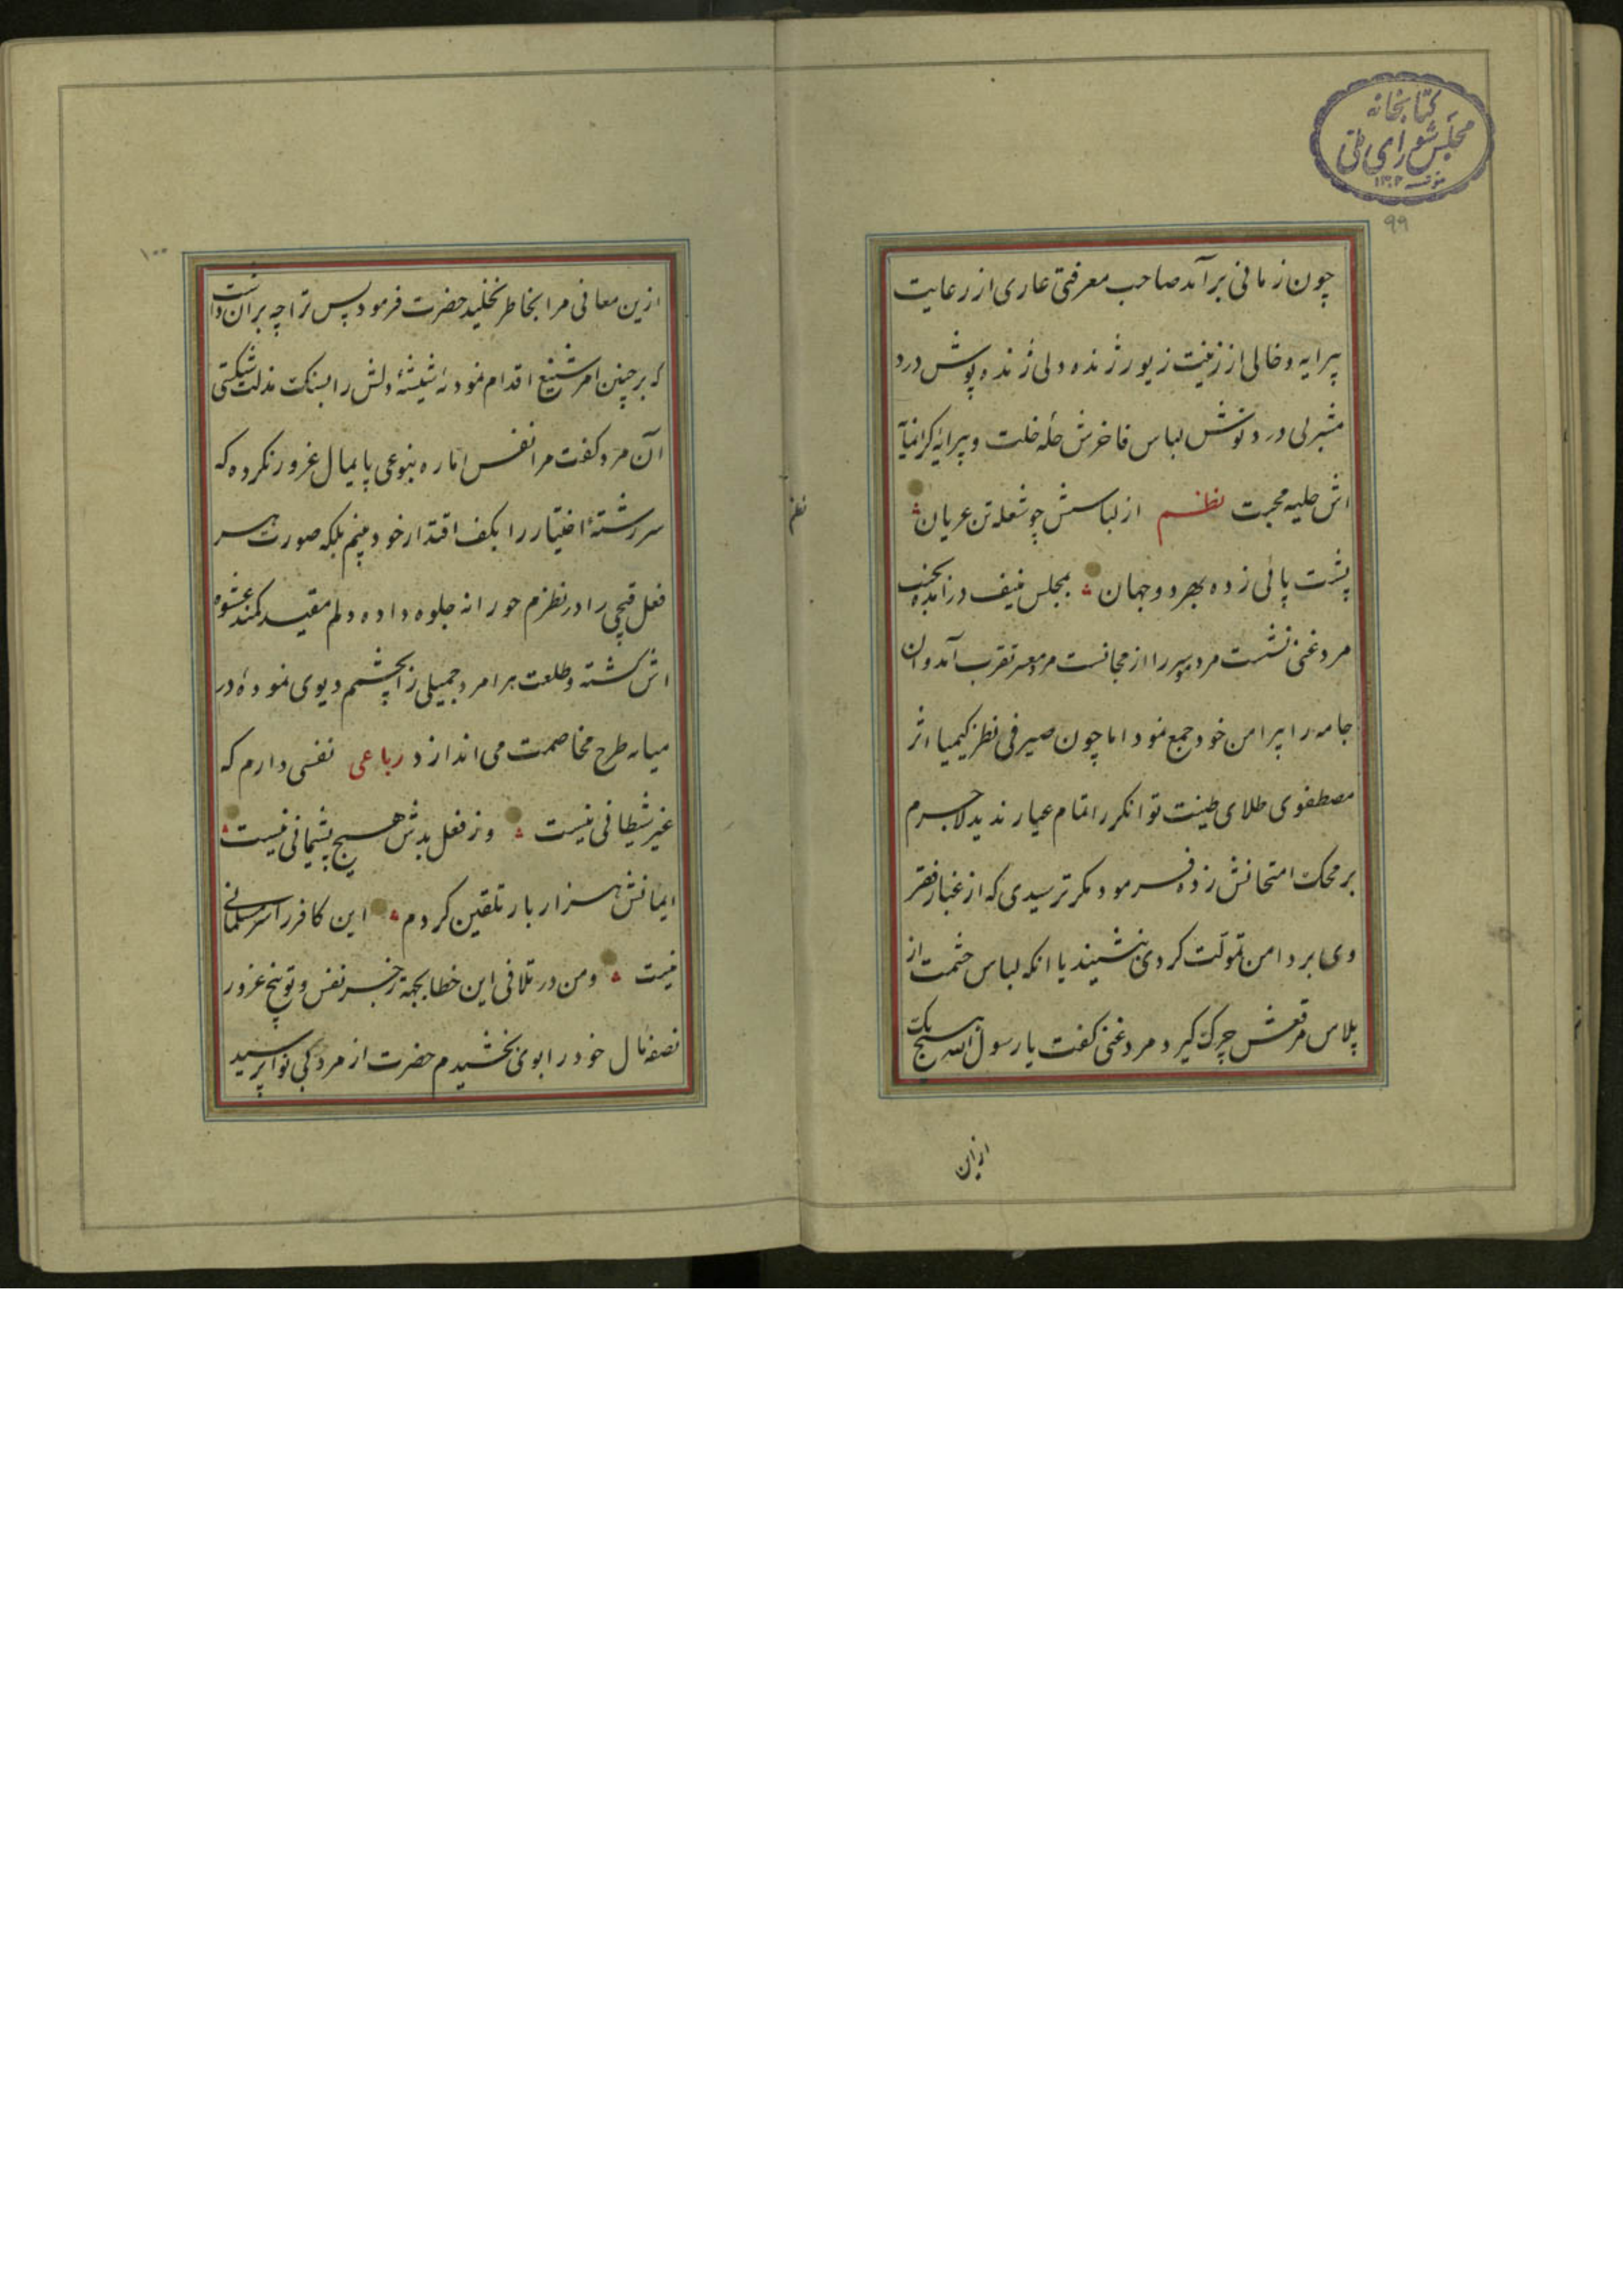 کتابخانه
مجلس شورای ملی
۹۹
چون زمانی برآمد صاحب معرفتی عاری از رعایت
پیرایه و خالی از زینت زیور ژنده دلی ژنده پوش درد
مشربی درد نوش لباس فاخرش حله خلت و پیرایه گرانمایه
اش حلیه محبت نظم از لباسش چو شعله تن عریان
پشت پائی زده بهر دو جهان بمجلس منیف درآمده بجنب
مرد غنی نشست مرد را از مجانست مرد معسر تقرب آمد و ان
جامه را پیرامن خود جمع نمود اما چون صیرفی نظر کیمیا اثر
مصطفوی طلای طینت توانگر را تمام عیار ندید لاجرم
بر محک امتحانش زده فرمود مگر ترسیدی که از غبار فقر
وی بر دامن تمولت گردی نشیند یا انکه لباس حشمت از
پلاس مرقعش چرک گیرد مرد غنی گفت یا رسول الله هیچ یک
ازین
نظم
۱۰۰
ازین معانی مرا بخاطر نخلید حضرت فرمود پس ترا چه بران داشت
که بر چنین امر شنیع اقدام نموده شیشهٔ دلش را بسنک مذلت شکستی
آن مرد کفت مرا نفس اماره بنوعی پایمال غرور نکرده که
سررشتهٔ اختیار را بکف اقتدار خود بینم بلکه صورت هر
فعل قبیحی را در نظرم حورانه جلوه داده دلم مقید کمند عشوه
اش کشته و طلعت هر امر جمیلی را بچشمم دیوی نموده در
میانه طرح مخاصمت می اندازد رباعی نفسی دارم که
غیر شیطانی نیست وز فعل بدش هیچ پشیمانی نیست
ایمانش هزار بار تلقین کردم این کافر را سر مسلمانی
نیست ومن در تلافی این خطا بجهة زجر نفس و توبیخ غرور
نصف مال خود را بوی بخشیدم حضرت از مرد بی نوا پرسید